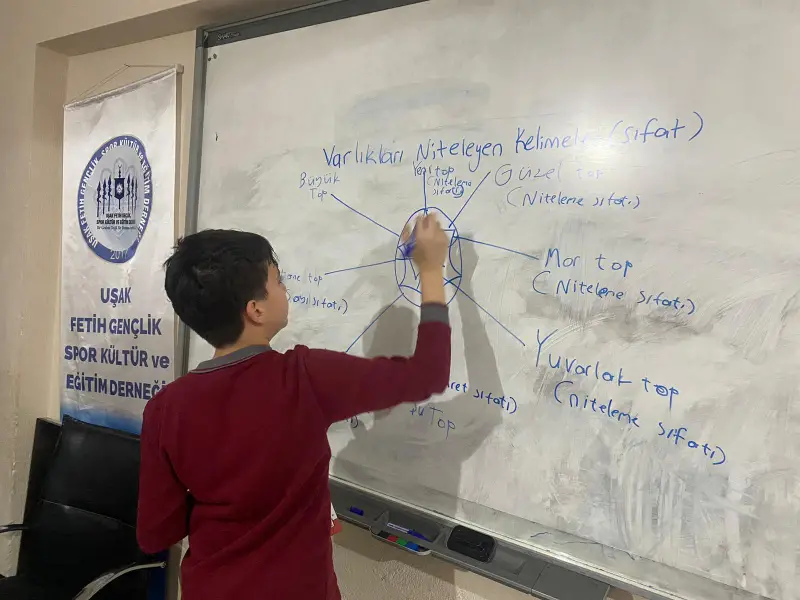 Varlıkları Niteleyen Kelimeler (sıfat)
Büyük
Top
top
(Niteleme
sıfatı)
Güzel top
(Niteleme sıfatı)
Mor top
(Niteleme sıfatı)
top
sıfatı)
Yuvarlak top
(niteleme sıfatı)
sıfatı)
Top
UŞAK FETİH GENÇLİK SPOR KÜLTÜR VE EĞİTİM DERNEĞİ
2017
UŞAK
FETİH GENÇLİK
SPOR KÜLTÜR ve
EĞİTİM DERNEĞİ